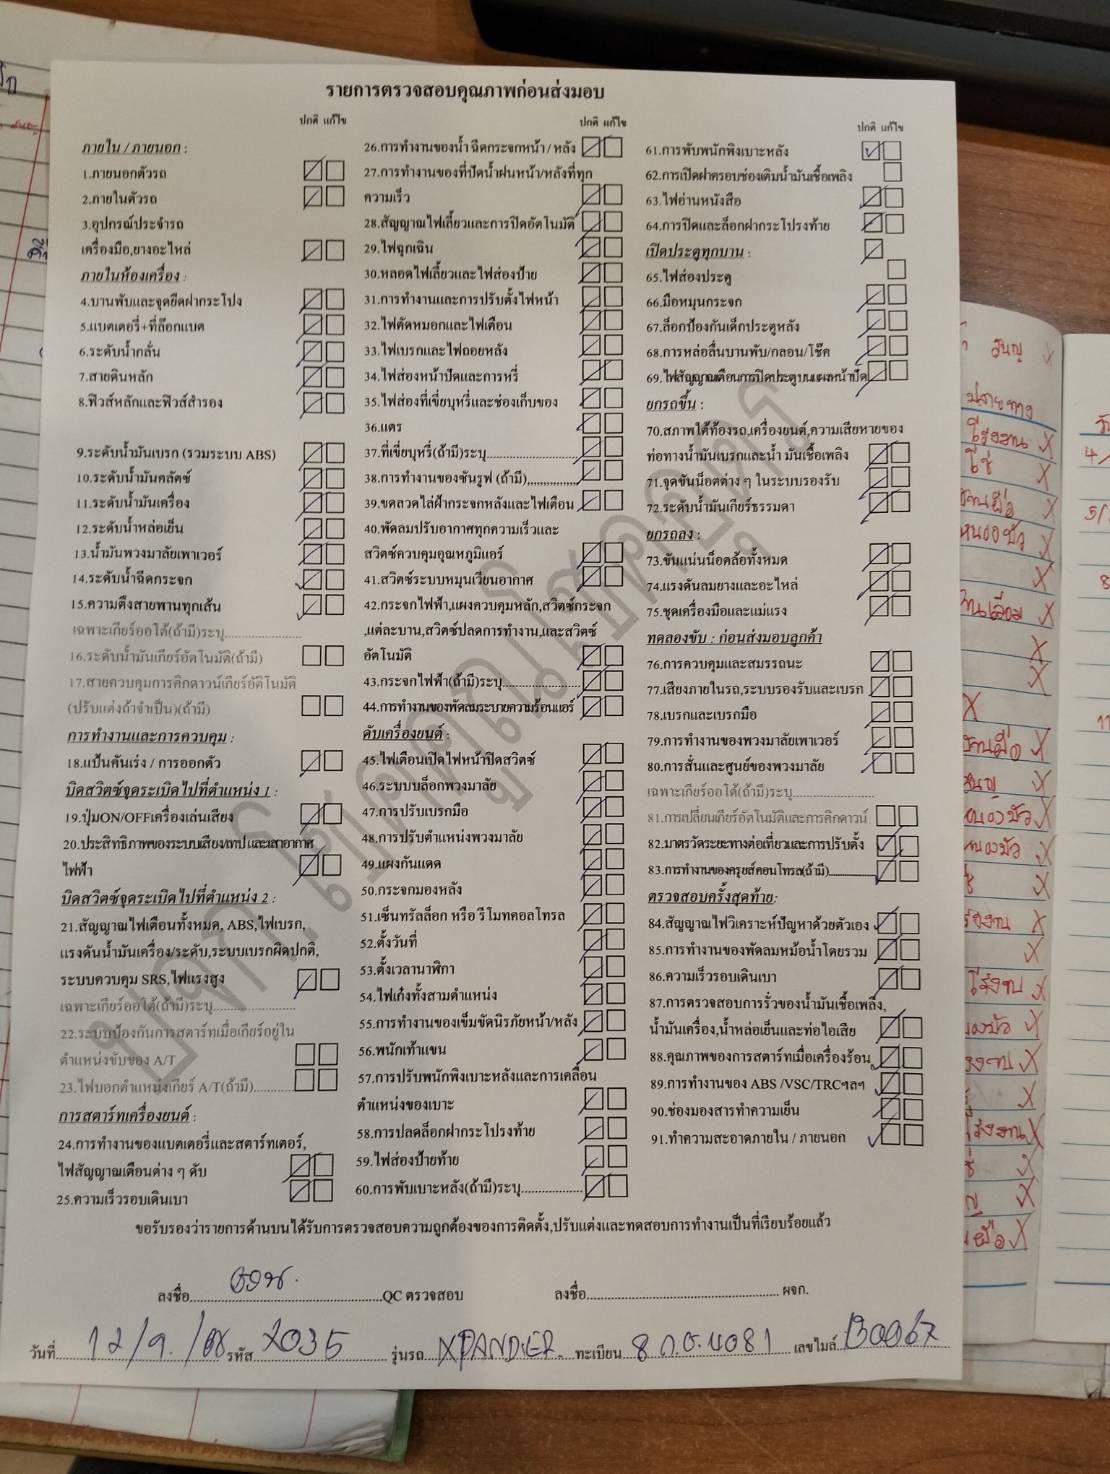 รายการตรวจสอบคุณภาพก่อนส่งมอบ
ปกติ แก้ไข
ภายใน / ภายนอก :
1.ภายนอกตัวรถ
2.ภายในตัวรถ
3.อุปกรณ์ประจำรถ
เครื่องมือ,ยางอะไหล่
ภายในห้องเครื่อง :
4.บานพับและจุดยึดฝากระโปง
5.แบตเตอรี่+ที่ล๊อกแบต
6.ระดับน้ำกลั่น
7.สายดินหลัก
8.ฟิวส์หลักและฟิวส์สำรอง
9.ระดับน้ำมันเบรก (รวมระบบ ABS)
10.ระดับน้ำมันคลัตช์
11.ระดับน้ำมันเครื่อง
12.ระดับน้ำหล่อเย็น
13.น้ำมันพวงมาลัยเพาเวอร์
14.ระดับน้ำฉีดกระจก
15.ความตึงสายพานทุกเส้น
เฉพาะเกียร์ออโต้(ถ้ามี)ระบุ....................
16.ระดับน้ำมันเกียร์อัตโนมัติ(ถ้ามี)
17.สายควบคุมการคิกดาวน์เกียร์อัติโนมัติ
(ปรับแต่งถ้าจำเป็น)(ถ้ามี)
การทำงานและการควบคุม :
18.แป้นคันเร่ง / การออกตัว
บิดสวิตซ์จุดระเบิดไปที่ตำแหน่ง 1 :
19.ปุ่มON/OFFเครื่องเล่นเสียง
20.ประสิทธิภาพของระบบเสียง/เทป และเสาอากาศ
ไฟฟ้า
บิดสวิตซ์จุดระเบิดไปที่ตำแหน่ง 2 :
21.สัญญาณไฟเตือนทั้งหมด, ABS,ไฟเบรก,
แรงดันน้ำมันเครื่อง/ระดับ,ระบบเบรกผิดปกติ,
ระบบควบคุม SRS,ไฟแรงสูง
เฉพาะเกียร์ออโต้(ถ้ามี)ระบุ....................
22.ระบบป้องกันการสตาร์ทเมื่อเกียร์อยู่ใน
ตำแหน่งขับของ A/T
23.ไฟบอกตำแหน่งเกียร์ A/T(ถ้ามี)..........
การสตาร์ทเครื่องยนต์ :
24.การทำงานของแบตเตอรี่และสตาร์ทเตอร์,
ไฟสัญญาณเตือนต่าง ๆ ดับ
25.ความเร็วรอบเดินเบา
ปกติ แก้ไข
26.การทำงานของน้ำ ฉีดกระจกหน้า / หลัง
27.การทำงานของที่ปัดน้ำฝนหน้า/หลังที่ทุก
ความเร็ว
28.สัญญาณไฟเลี้ยวและการปิดอัตโนมัติ
29.ไฟฉุกเฉิน
30.หลอดไฟเลี้ยวและไฟส่องป้าย
31.การทำงานและการปรับตั้งไฟหน้า
32.ไฟตัดหมอกและไฟเตือน
33.ไฟเบรกและไฟถอยหลัง
34.ไฟส่องหน้าปัดและการหรี่
35.ไฟส่องที่เขี่ยบุหรี่และช่องเก็บของ
36.แตร
37.ที่เขี่ยบุหรี่(ถ้ามี)ระบุ....................
38.การทำงานของซันรูฟ (ถ้ามี)...............
39.ขดลวดไล่ฝ้ากระจกหลังและไฟเตือน
40.พัดลมปรับอากาศทุกความเร็วและ
สวิตซ์ควบคุมอุณหภูมิแอร์
41.สวิตซ์ระบบหมุนเวียนอากาศ
42.กระจกไฟฟ้า,แผงควบคุมหลัก,สวิตซ์กระจก
,แต่ละบาน,สวิตซ์ปลดการทำงาน,และสวิตซ์
อัตโนมัติ
43.กระจกไฟฟ้า(ถ้ามี)ระบุ....................
44.การทำงานของพัดลมระบายความร้อนแอร์
ดับเครื่องยนต์ :
45.ไฟเตือนเปิดไฟหน้าปิดสวิตซ์
46.ระบบบล็อกพวงมาลัย
47.การปรับเบรกมือ
48.การปรับตำแหน่งพวงมาลัย
49.แผงกันแดด
50.กระจกมองหลัง
51.เซ็นทรัลล็อก หรือ รีโมทคอลโทรล
52.ตั้งวันที่
53.ตั้งเวลานาฬิกา
54.ไฟเก๋งทั้งสามตำแหน่ง
55.การทำงานของเข็มขัดนิรภัยหน้า/หลัง
56.พนักเท้าแขน
57.การปรับพนักพิงเบาะหลังและการเคลื่อน
ตำแหน่งของเบาะ
58.การปลดล็อกฝากระโปรงท้าย
59.ไฟส่องป้ายท้าย
60.การพับเบาะหลัง(ถ้ามี)ระบุ...............
ปกติ แก้ไข
61.การพับพนักพิงเบาะหลัง
62.การเปิดฝาครอบช่องเติมน้ำมันเชื้อเพลิง
63.ไฟอ่านหนังสือ
64.การปิดและล็อกฝากระโปรงท้าย
เปิดประตูทุกบาน :
65.ไฟส่องประตู
66.มือหมุนกระจก
67.ล็อกป้องกันเด็กประตูหลัง
68.การหล่อลื่นบานพับ/กลอน/โช๊ค
69.ไฟสัญญาณเตือนการปิดประตูบนแผงหน้าปัด
ยกรถขึ้น :
70.สภาพใต้ท้องรถ,เครื่องยนต์,ความเสียหายของ
ท่อทางน้ำมันเบรกและน้ำ มันเชื้อเพลิง
71.จุดขันน็อตต่าง ๆ ในระบบรองรับ
72.ระดับน้ำมันเกียร์ธรรมดา
ยกรถลง :
73.ขันแน่นน็อตล้อทั้งหมด
74.แรงดันลมยางและอะไหล่
75.ชุดเครื่องมือและแม่แรง
ทดลองขับ : ก่อนส่งมอบลูกค้า
76.การควบคุมและสมรรถนะ
77.เสียงภายในรถ,ระบบรองรับและเบรก
78.เบรกและเบรกมือ
79.การทำงานของพวงมาลัยเพาเวอร์
80.การสั่นและศูนย์ของพวงมาลัย
เฉพาะเกียร์ออโต้(ถ้ามี)ระบุ....................
81.การเปลี่ยนเกียร์อัตโนมัติและการคิกดาวน์
82.มาตรวัดระยะทางต่อเที่ยวและการปรับตั้ง
83.การทำงานของครุยส์คอนโทรล(ถ้ามี)..........
ตรวจสอบครั้งสุดท้าย:
84.สัญญาณไฟวิเคราะห์ปัญหาด้วยตัวเอง
85.การทำงานของพัดลมหม้อน้ำโดยรวม
86.ความเร็วรอบเดินเบา
87.การตรวจสอบการรั่วของน้ำมันเชื้อเพลิง,
น้ำมันเครื่อง,น้ำหล่อเย็นและท่อไอเสีย
88.คุณภาพของการสตาร์ทเมื่อเครื่องร้อน
89.การทำงานของ ABS /VSC/TRCฯลฯ
90.ช่องมองสารทำความเย็น
91.ทำความสะอาดภายใน / ภายนอก
ขอรับรองว่ารายการด้านบนได้รับการตรวจสอบความถูกต้องของการติดตั้ง,ปรับแต่งและทดสอบการทำงานเป็นที่เรียบร้อยแล้ว
ลงชื่อ....................QC ตรวจสอบ
ลงชื่อ.................... ผจก.
วันที่ 12/9./68 รหัส 2035 รุ่นรถ XPANDER ทะเบียน 8กฮ.4081 เลขไมล์ 130067